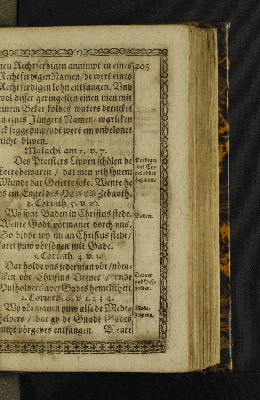 nen Rechtferdigen annimpt in eines 205
Rechtferdigen Namen / de wert eines
Rechtferdigen lohn entfangen. Vnd
wol disser geringesten einen men mit
einem Beker koldes waters drencket
in eines Jüngers Namen / warliken
ick segge juw / ydt wert em vnbelonet
nicht bliven.
Malachi am 2. v. 7.
Des Preesters Lippen schölen de
Lere bewaren / dat men vth synem
Munde dat Gesette söke. Wente he
ys ein Engel des HEREN Zebaoth.
2. Corinth. 5. v. 20.
Wy synt Baden in Christus stede.
Wente Godt vörmanet dorch vns.
So bidde wy nu an Christus stede /
latet juw vörsönen mit Gade.
Baden.
1. Corinth. 4. v. 1.
Dar holde vns jederman vör / nöm-
liken vör Christus Dener / vnde
Husholders aver Gades hemelicheit
Dener
2. Corinth. 6. v. 1. 2. 3. 4.
Wy vörmanen juw alse de Mede-
helpers / dat gy de Gnade Gades
nicht vörgeves entfangen. Wente
Mede-
helpers.